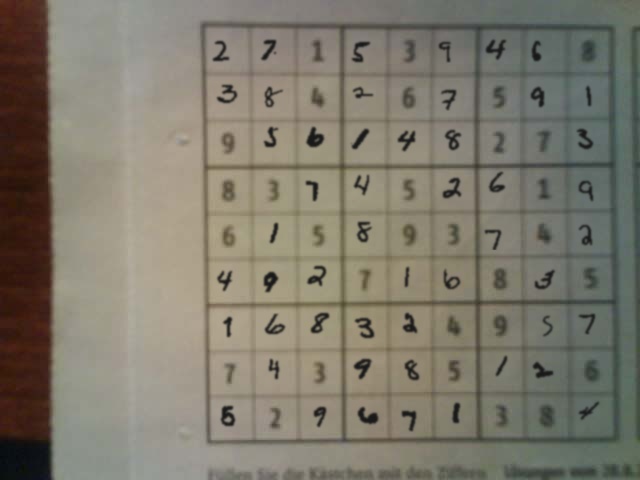 2 7 1 5 3 9 4 6 8
3 8 4 2 6 7 5 9 1
9 5 6 1 4 8 2 7 3
8 3 7 4 5 2 6 1 9
6 1 5 8 9 3 7 4 2
4 9 2 7 1 6 8 3 5
1 6 8 3 2 4 9 5 7
7 4 3 9 8 5 1 2 6
5 2 9 6 7 1 3 8 4
Füllen Sie die Kästchen mit den Ziffern Lösungen vom 28.8.